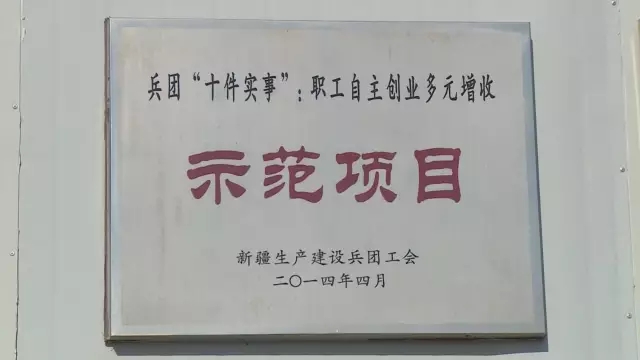 兵团“十件实事”：职工自主创业多元增收
示范项目
新疆生产建设兵团工会
二〇一四年四月